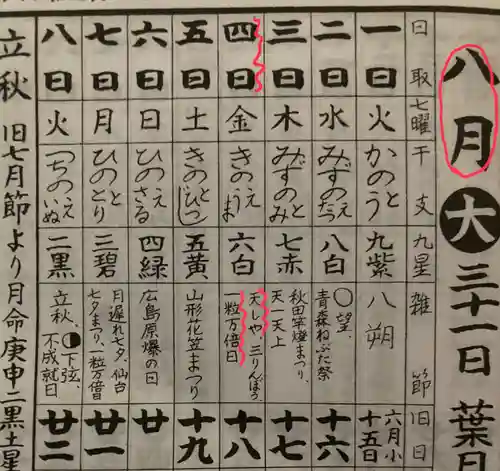 八月 大 三十一日 葉月
日取 七曜 干支 九星 雑節 旧日
一日 火 かのとう 九紫 八朔 六月小十五日
二日 水 みずのえたつ 八白 ○望、青森ねぶた祭 十六
三日 木 みずのとみ 七赤 秋田竿燈まつり、天一天上 十七
四日 金 きのえうま 六白 天しや、三りんぼう、一粒万倍日 十八
五日 土 きのとひつじ 五黄 山形花笠まつり 十九
六日 日 ひのえさる 四緑 広島原爆の日 廿
七日 月 ひのととり 三碧 月遅れ七夕、仙台七夕まつり、一粒万倍日 廿一
八日 火 つちのえいぬ 二黒 立秋、下弦、不成就日 廿二
立秋 旧七月節より月命庚申二黒土星